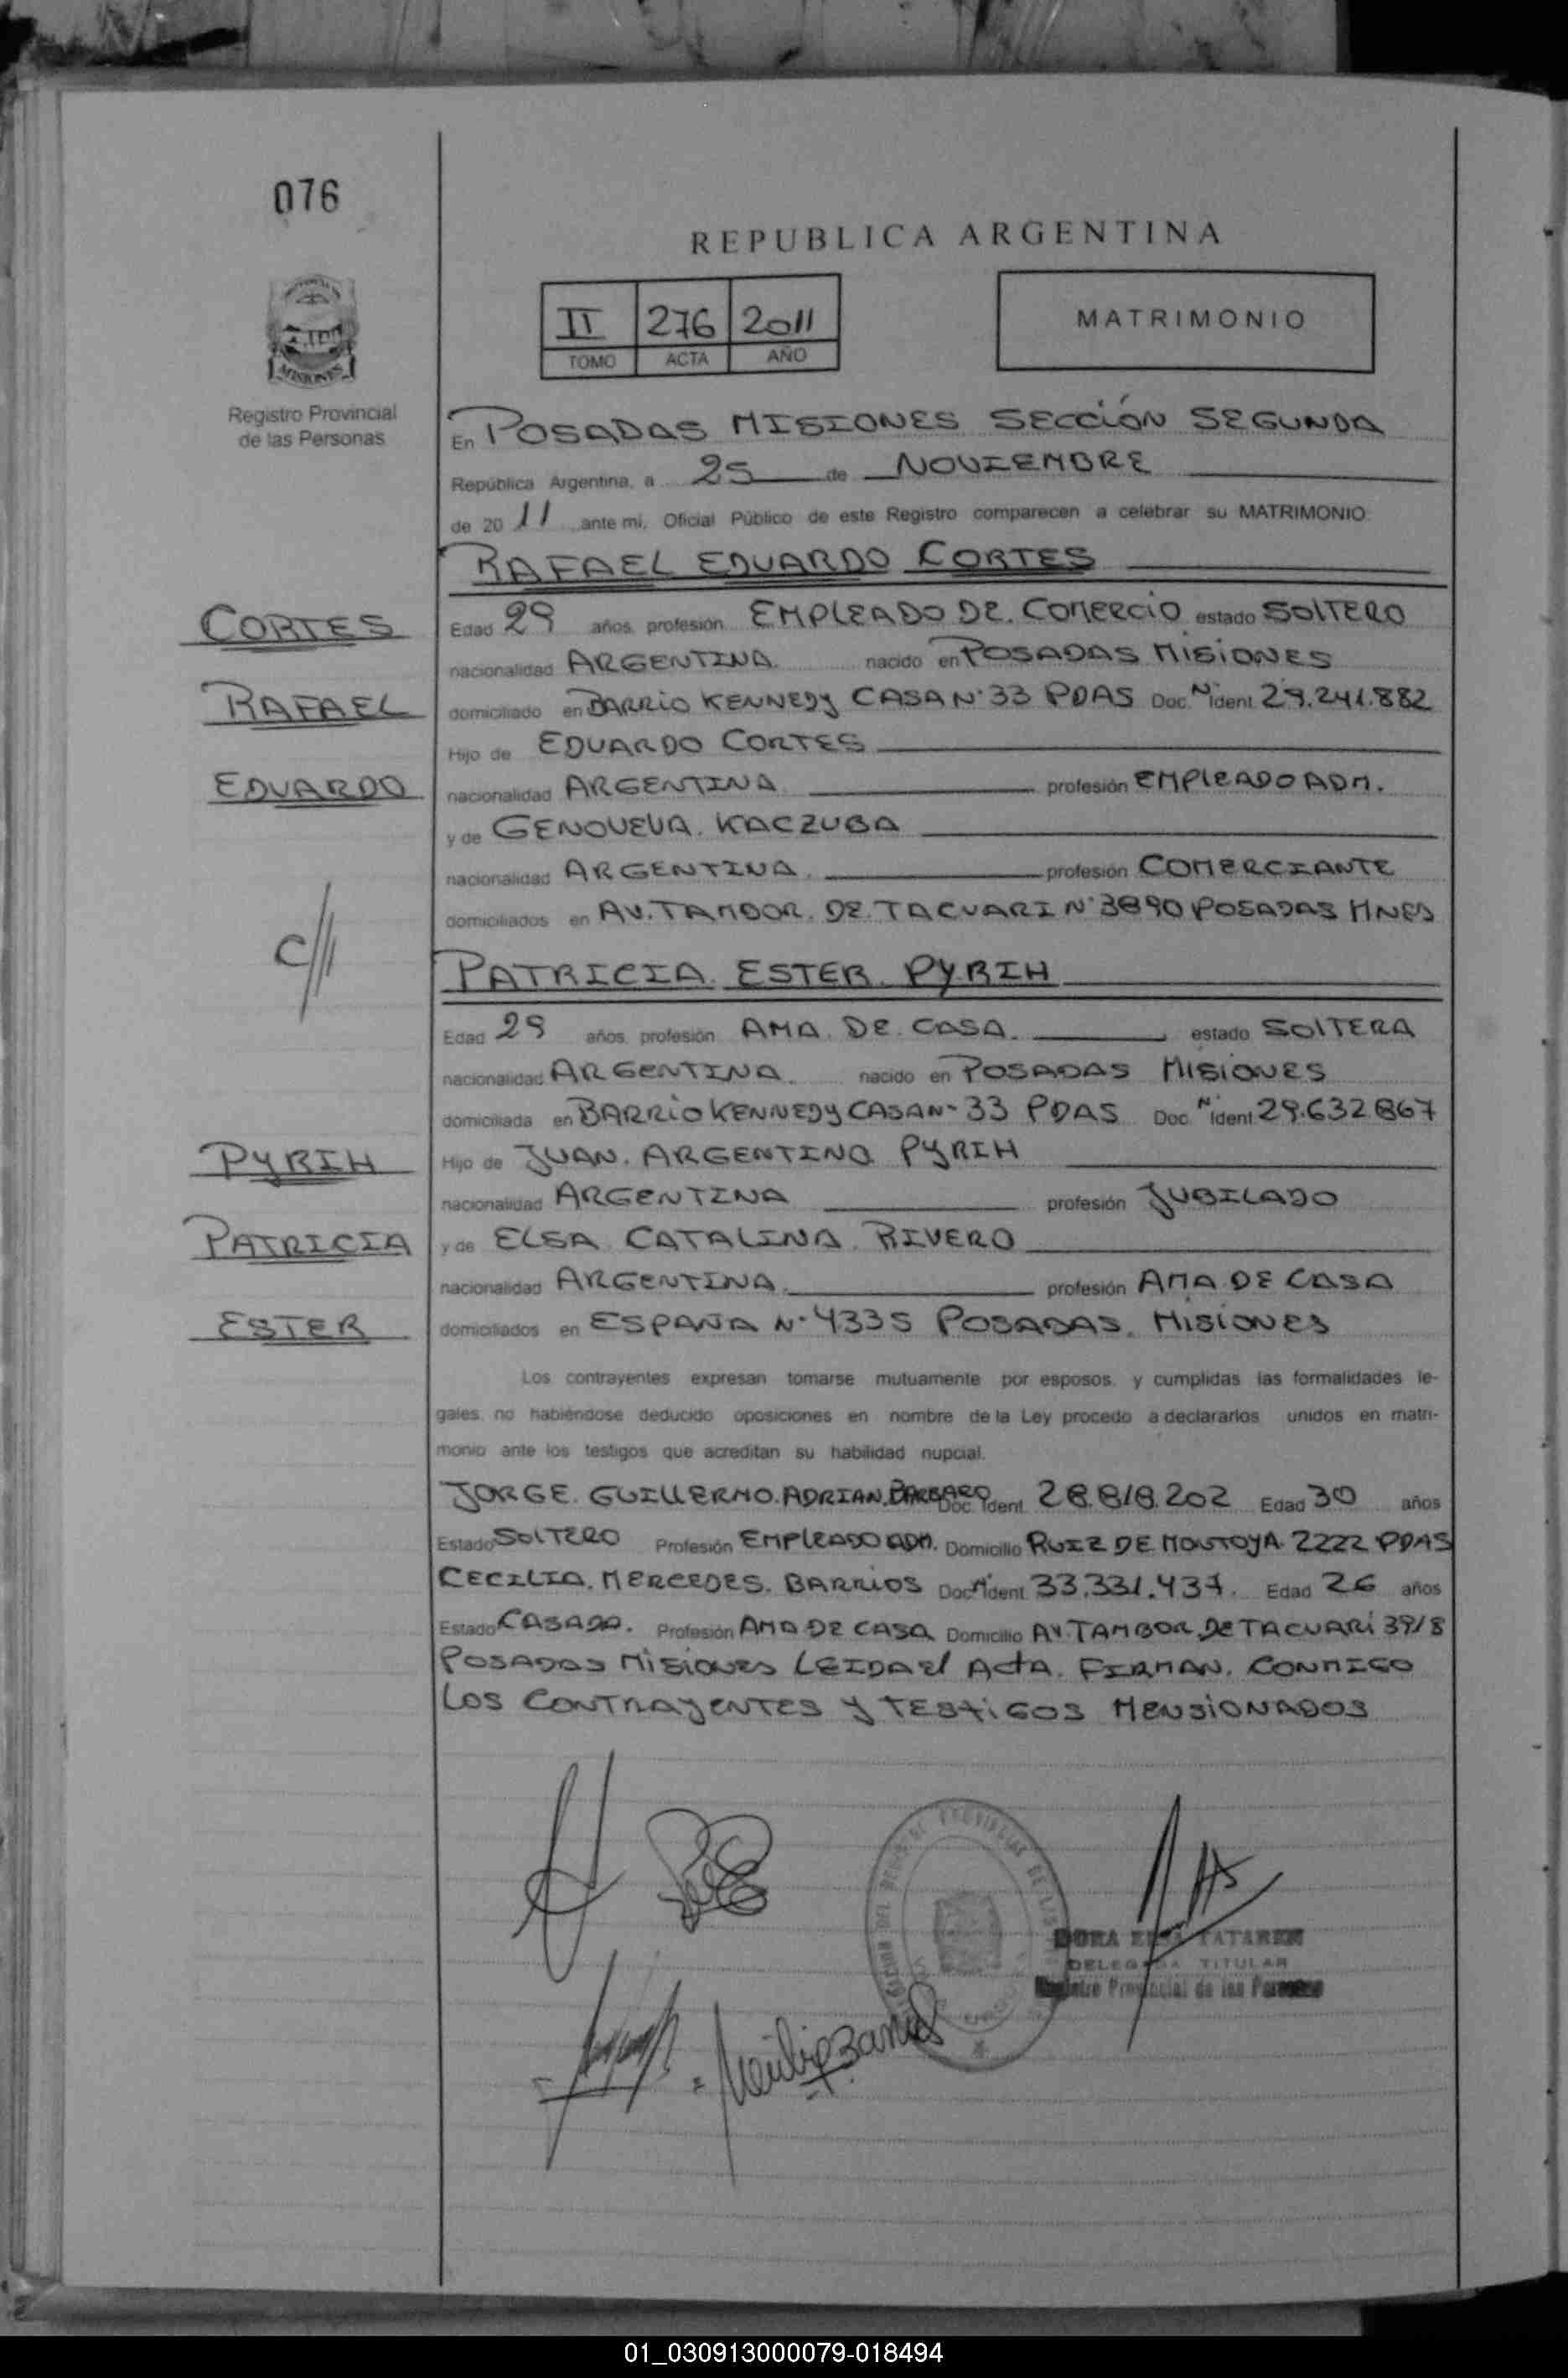 076
REPUBLICA ARGENTINA
II 276 2011
TOMO ACTA AÑO
MATRIMONIO
MISIONES
Registro Provincial
de las Personas
En POSADAS MISIONES SECCIÓN SEGUNDA
República Argentina, a 25 de NOVIEMBRE
de 20 11 ante mi, Oficial Público de este Registro comparecen a celebrar su MATRIMONIO
RAFAEL EDUARDO CORTES
CORTES
Edad 29 años, profesión EMPLEADO DE. COMERCIO estado SOLTERO
nacionalidad ARGENTINA. nacido en POSADAS MISIONES
RAFAEL
domiciliado en BARRIO KENNEDY CASA N° 33 PDAS Doc. N° Ident. 29.241.882
Hijo de EDUARDO CORTES
EDUARDO
nacionalidad ARGENTINA profesión EMPLEADO ADM.
y de GENOVEVA. KACZUBA
nacionalidad ARGENTINA. profesión COMERCIANTE
domiciliados en AV. TAMBOR. DE. TACUARI N° 3890 POSADAS MNES
C///
PATRICIA. ESTER. PYRIH
Edad 29 años, profesión AMA. DE. CASA. estado SOLTERA
nacionalidad ARGENTINA. nacido en POSADAS MISIONES
domiciliada en BARRIO KENNEDY CASA N° 33 PDAS Doc. N° Ident. 29.632.867
PYRIH
Hijo de JUAN. ARGENTINO PYRIH
nacionalidad ARGENTINA profesión JUBILADO
PATRICIA
y de ELSA CATALINA. RIVERO
nacionalidad ARGENTINA. profesión AMA DE CASA
ESTER
domiciliados en ESPAÑA N° 4335 POSADAS. MISIONES
Los contrayentes expresan tomarse mutuamente por esposos, y cumplidas las formalidades le-
gales, no habiéndose deducido oposiciones en nombre de la Ley procedo a declararlos unidos en matri-
monio ante los testigos que acreditan su habilidad nupcial.
JORGE. GUILLERMO. ADRIAN. BARBARO Doc. Ident. 28.818.202 Edad 30 años
Estado SOLTERO Profesión EMPLEADO ADM. Domicilio RUIZ DE MONTOYA. 2222 PDAS
CECILIA. MERCEDES. BARRIOS Doc. N° Ident. 33.331.437. Edad 26 años
Estado CASADA. Profesión AMA DE CASA Domicilio AV. TAMBOR. DE TACUARÍ 3918
POSADAS MISIONES LEIDA el ACTA. FIRMAN. CONMIGO
LOS CONTRAYENTES Y TESTIGOS MENSIONADOS
DELEGADA TITULAR
Registro Provincial de las Personas
01_030913000079-018494